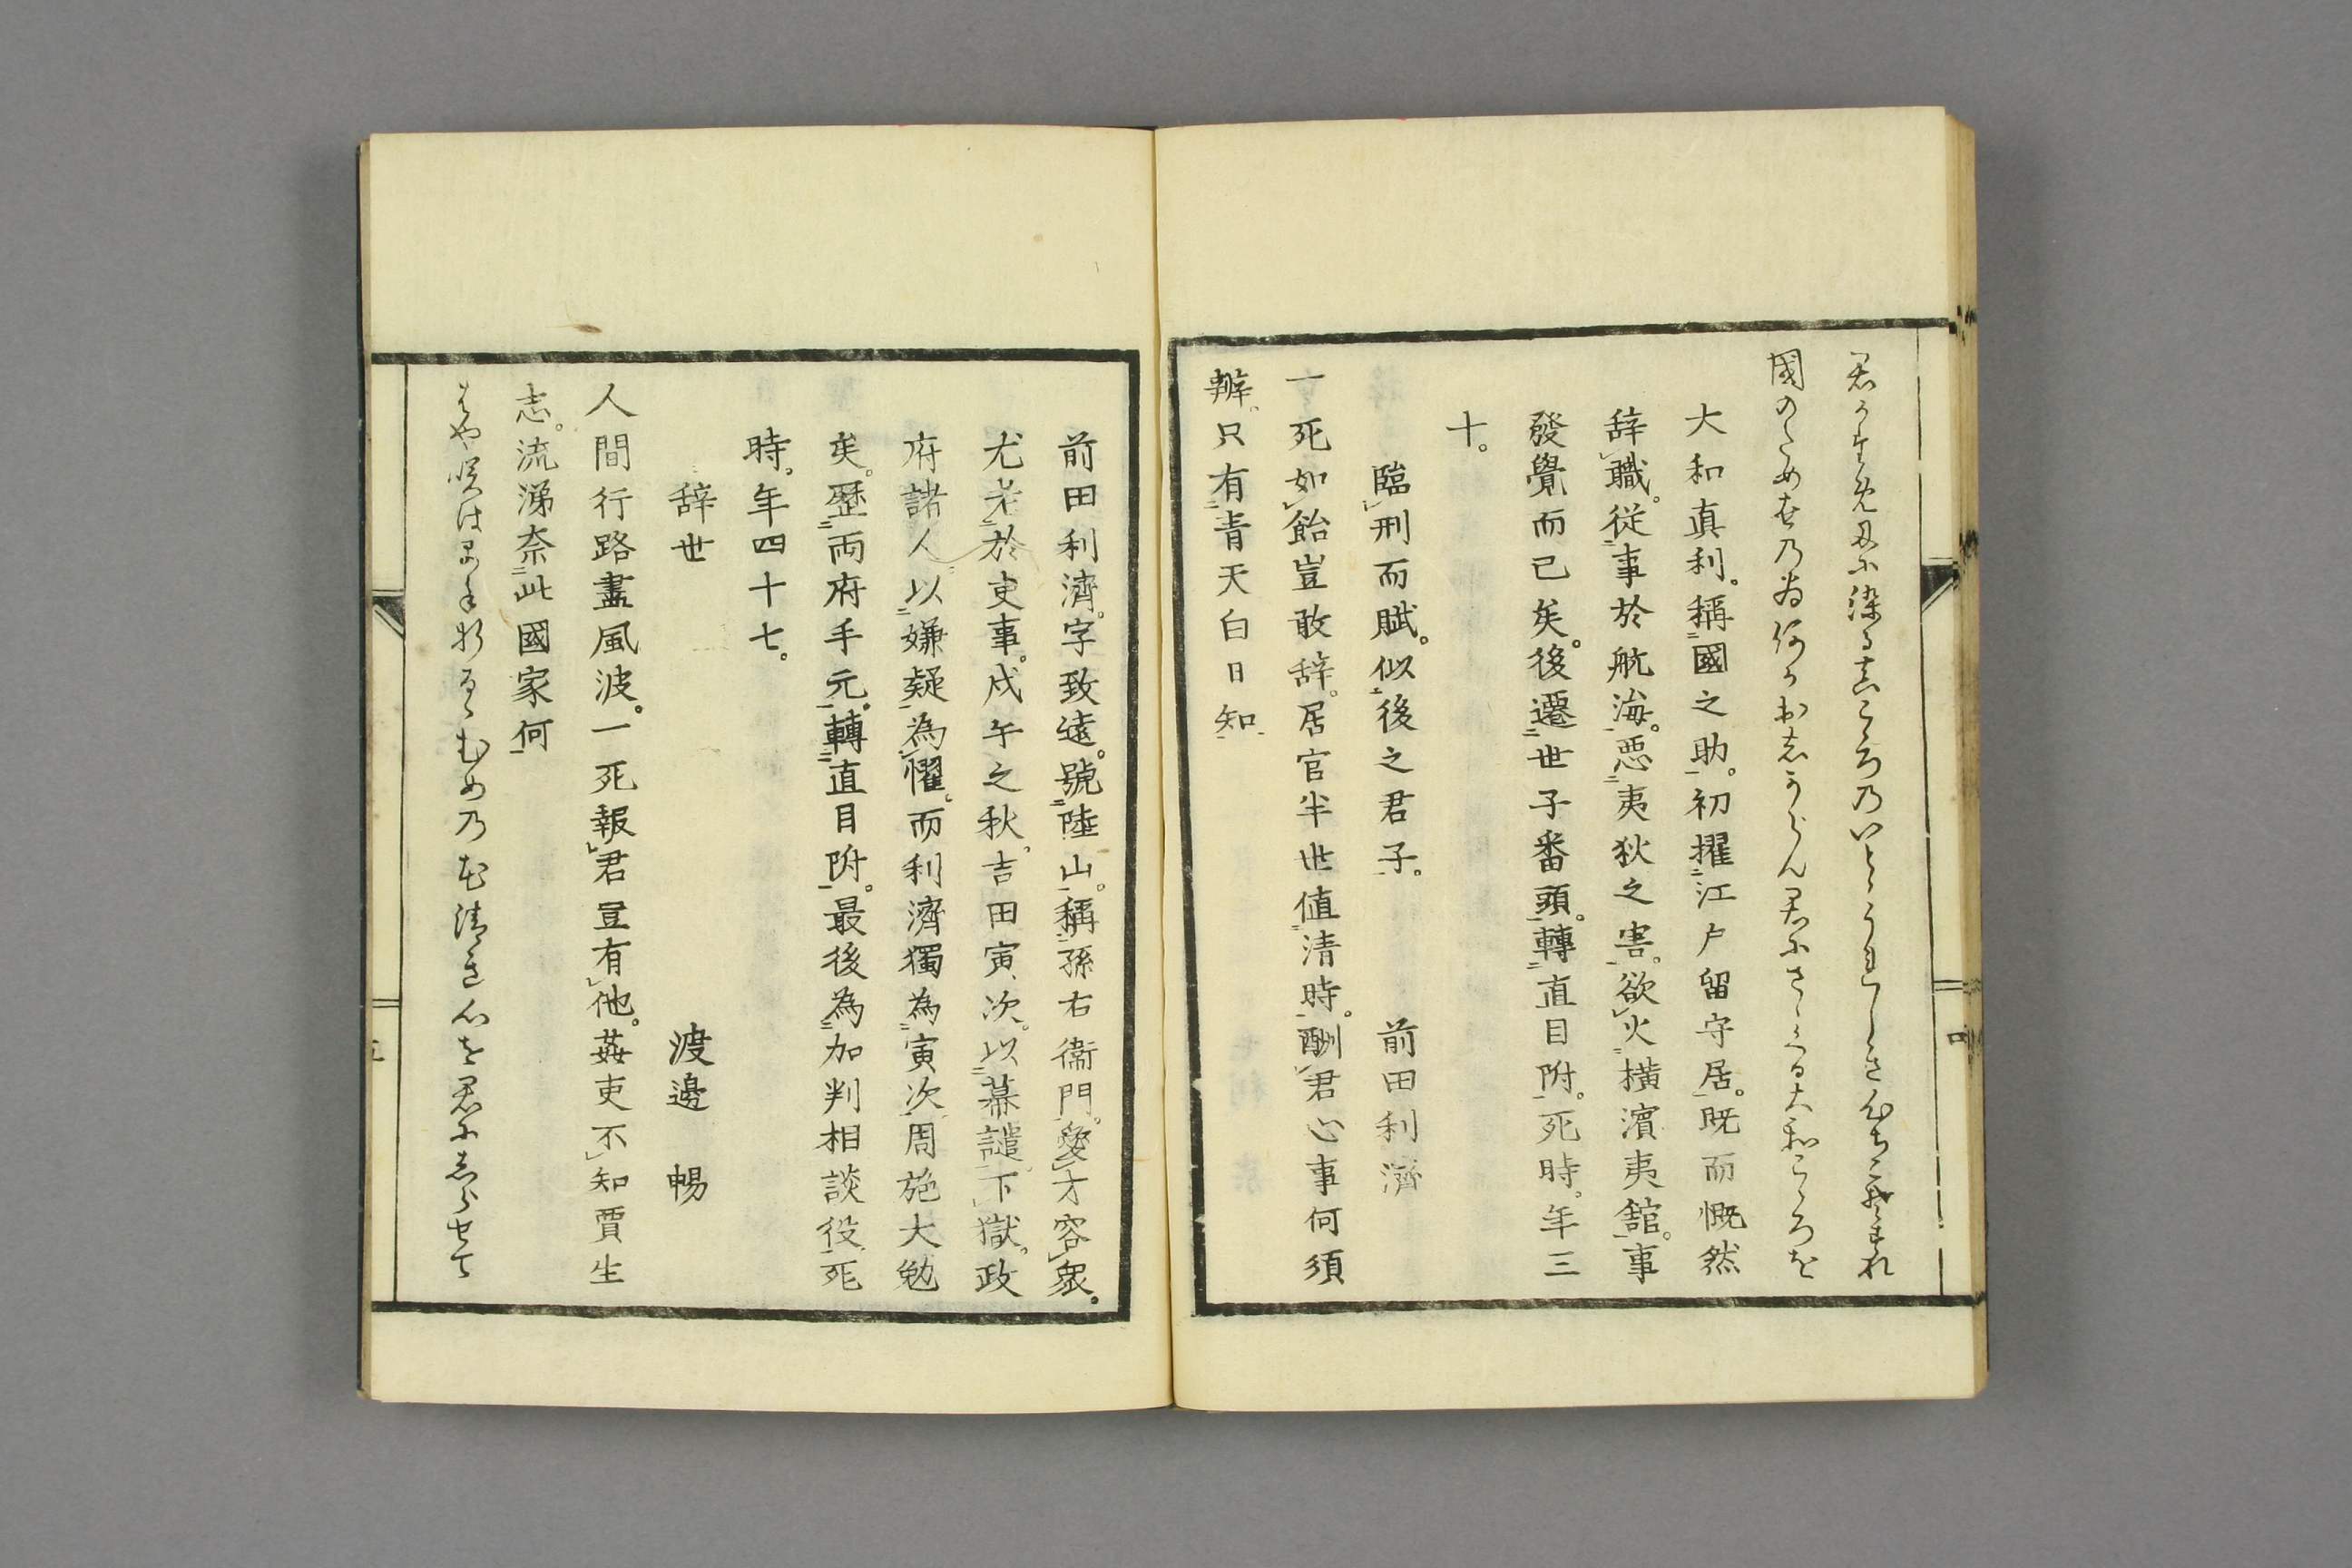 國のため世乃為何かおしからん君にさゝくる大和こゝろを
大和真利。稱國之助。初擢江戸留守居。既而慨然
辞職。從事於航海。悪夷狄之害。欲火橫濵夷舘。事
發覺而已矣。後遷世子番頭。轉直目附。死時。年三
十。
臨刑而賦。似後之君子。 前田利濟
一死如飴豈敢辞。居官半世値清時。酬君心事何須
辨。只有青天白日知
四
前田利濟。字致遠。號陸山。稱孫右衞門。愛才容衆。
尤老於吏事。戌午之秋。吉田寅次。以幕譴下獄。政
府諸人以嫌疑為懼。而利濟獨為寅次周旋大勉
矣。歴両府手元。轉直目附。最後為加判相談役。死
時。年四十七。
辞世 渡邊暢
人間行路盡風波。一死報君豈有他。姦吏不知賈生
志。流涕奈此國家何
五